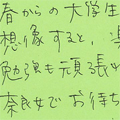 春からの大学生
想像すると、
勉強も頑張
奈良女でお待ち